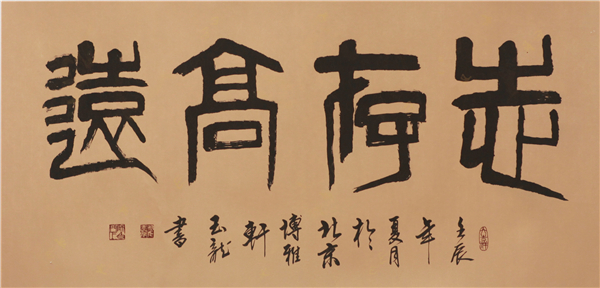 志存高遠
壬辰年夏月於北京博雅軒玉龍書